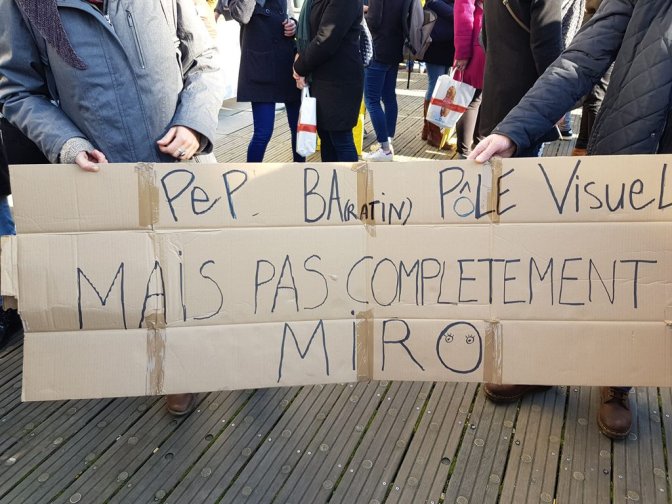 PeP. BA(RATIN) PÔLE VisueL
MAiS PAS COMPLETEMENT
MiRO